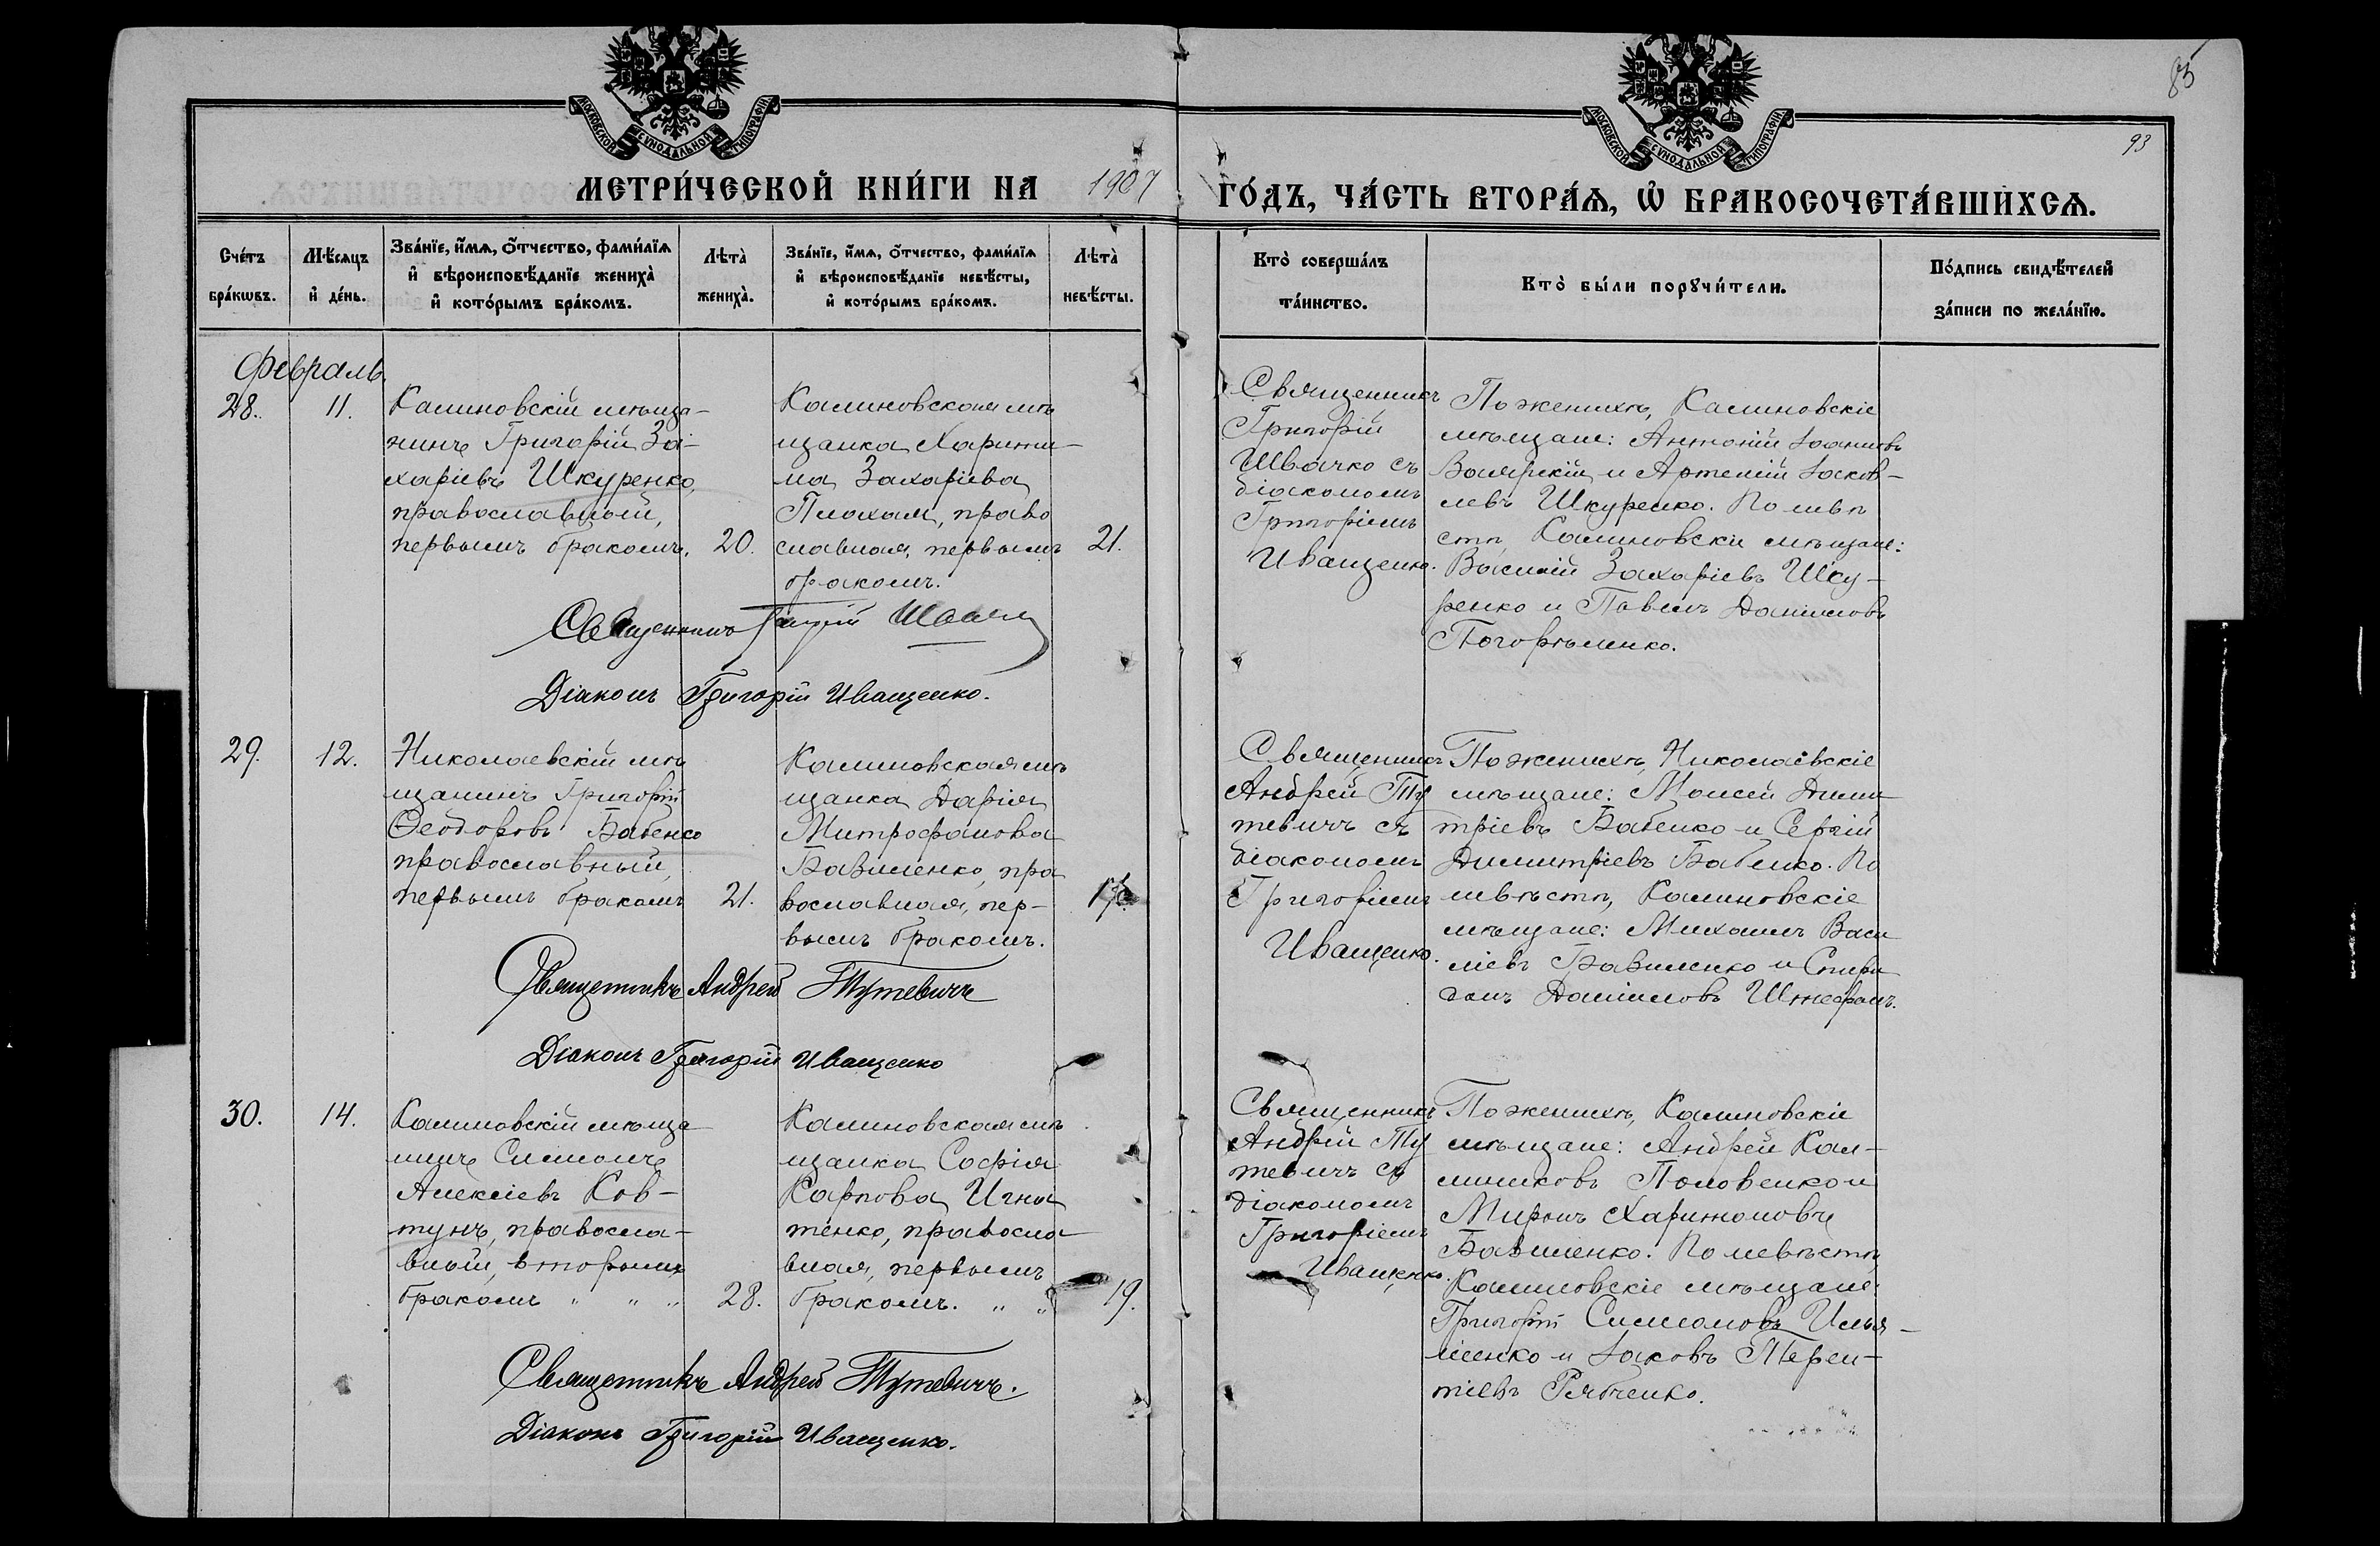 85
93
МОСКОВСКОЙ СѴНОДАЛЬНОЙ ТИПОГРАФІИ
МОСКОВСКОЙ СѴНОДАЛЬНОЙ ТИПОГРАФІИ
МЕТРИ́ЧЕСКОЙ КНИ́ГИ НА 1907 ГО́ДЪ, ЧА́СТЬ ВТОРА́Ѧ, Ѽ БРАКОСОЧЕТА́ВШИХСѦ.
Сче́тъ
бра́кѡвъ.
Мѣ́сяцъ
и҆ де́нь.
Зва́нїе, и҆́мѧ, ѻ҆́тчество, фами́лїѧ
и҆ вѣроисповѣ́данїе жениха̀
и҆ кото́рымъ бра́комъ.
Лѣта̀
жениха̀.
Зва́нїе, и҆́мѧ, ѻ҆́тчество, фами́лїѧ
и҆ вѣроисповѣ́данїе невѣ́сты,
и҆ кото́рымъ бра́комъ.
Лѣта̀
невѣ́сты.
Кто̀ соверша́лъ
та́инство.
Кто̀ бы́ли порꙋчи́тели.
По́дпись свидѣ́телей
за́писи по жела́нїю.
Февраль.
28.
11.
Калиновскій мѣща-
нинъ Григорій За-
харіевъ Шкуренко,
православный,
первымъ бракомъ.
20.
Калиновская мѣ
щанка Харити-
на Захаріева
Плохая, право
славная, первымъ
бракомъ.
21.
Священникъ
Григорій
Швачко съ
діакономъ
Григоріемъ
Иващенко.
По женихѣ, Калиновскіе
мѣщане: Антоній Іоанновъ
Боярскій и Артемій Іаков-
левъ Шкуренко. По невѣ
стѣ, Калиновскіе мѣщане:
Василій Захаріевъ Шку-
ренко и Павелъ Даниловъ
Погорѣленко.
Священникъ Григорій
Діаконъ Григорій Иващенко.
29.
12.
Николаевскій мѣ
щанинъ Григорій
Ѳеодоровъ Бабенко
православный,
первымъ бракомъ
21.
Калиновская мѣ
щанка Дарія
Митрофанова
Бавиленко, пра
вославная, пер-
вымъ бракомъ.
Священникъ
Андрей Ту
тевичъ съ
діакономъ
Григоріемъ
Иващенко.
По женихѣ, Николаевскіе
мѣщане: Моисей Дими
тріевъ Бабенко и Сергій
Димитріевъ Бабенко. По
невѣстѣ, Калиновскіе
мѣщане: Михаилъ Васи
ліевъ Бавиленко и Спири
донъ Даниловъ
Священникъ Андрей Тутевичъ
Діаконъ Григорій Иващенко
30.
14.
Калиновскій мѣща
нинъ Симеонъ
Алексіевъ Ков-
тунъ, правосла-
вный, вторымъ
бракомъ " " "
28.
Калиновская мѣ
щанка Софія
Карпова Игна
тенко, правосла
вная, первымъ
бракомъ. " "
19.
Священникъ
Андрей Ту
тевичъ съ
діакономъ
Григоріемъ
Иващенко.
По женихѣ, Калиновскіе
мѣщане: Андрей Кал-
линиковъ Половенко и
Миронъ Харитоновъ
Бавиленко. По невѣстѣ,
Калиновскіе мѣщане:
Григорій Симеоновъ Илья-
шенко и Іаковъ Терен-
тіевъ Рябченко.
Священникъ Андрей Тутевичъ.
Діаконъ Григорій Иващенко.